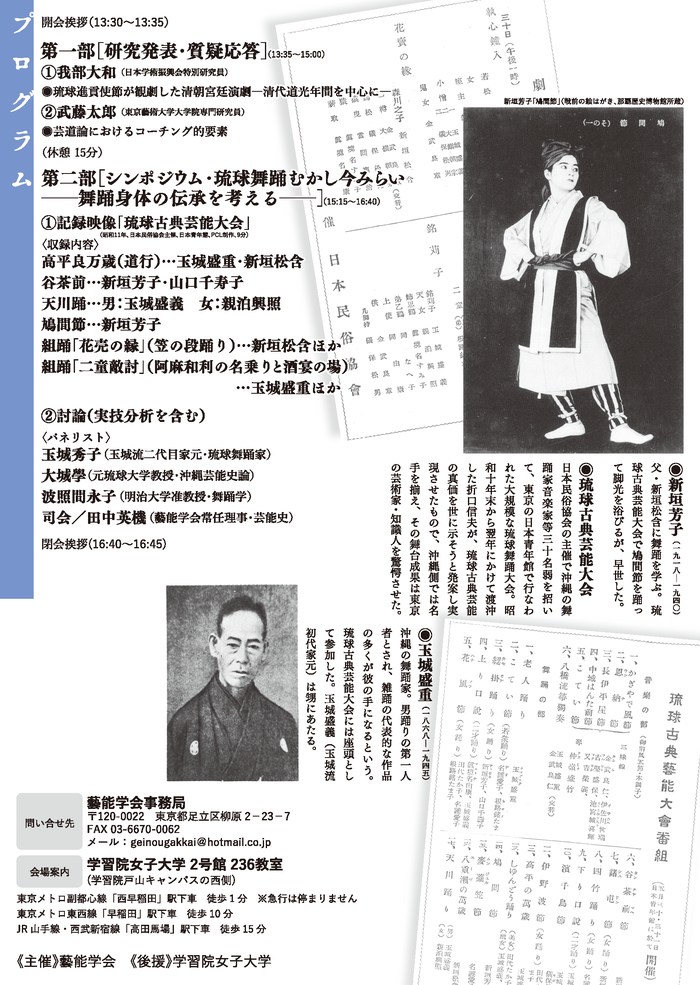 プログラム
開会挨拶(13:30~13:35)
第一部[研究発表・質疑応答](13:35~15:00)
①我部大和(日本学術振興会特別研究員)
●琉球進貢使節が観劇した清朝宮廷演劇―清代道光年間を中心に―
②武藤太郎(東京藝術大学大学院専門研究員)
●芸道論におけるコーチング的要素
(休憩 15分)
第二部[シンポジウム・琉球舞踊むかし今みらい
――舞踊身体の伝承を考える――](15:15~16:40)
①記録映像「琉球古典芸能大会」
(昭和11年、日本民俗協会主催、日本青年館、PCL制作、9分)
〈収録内容〉
高平良万歳(道行)…玉城盛重・新垣松含
谷茶前…新垣芳子・山口千寿子
天川踊…男:玉城盛義 女:親泊興照
鳩間節…新垣芳子
組踊「花売の縁」(笠の段踊り)…新垣松含ほか
組踊「二童敵討」(阿麻和利の名乗りと酒宴の場)
…玉城盛重ほか
②討論(実技分析を含む)
〈パネリスト〉
玉城秀子(玉城流二代目家元・琉球舞踊家)
大城學(元琉球大学教授・沖縄芸能史論)
波照間永子(明治大学准教授・舞踊学)
司会/田中英機(藝能学会常任理事・芸能史)
閉会挨拶(16:40~16:45)
三十日(午後一時)
執心鐘入
劇
花賣の縁
森川之子
銘苅子
催 日本民俗協會
新垣芳子「鳩間節」(戦前の絵はがき、那覇歴史博物館所蔵)
(一のそ) 節間鳩
●新垣芳子(一九一八―一九四〇)
父・新垣松含に舞踊を学ぶ。琉
球古典芸能大会で鳩間節を踊っ
て脚光を浴びるが、早世した。
●琉球古典芸能大会
日本民俗協会の主催で沖縄の舞
踊家音楽家等三十名弱を招い
て、東京の日本青年館で行なわ
れた大規模な琉球舞踊大会。昭
和十年末から翌年にかけて渡沖
した折口信夫が、琉球古典芸能
の真価を世に示そうと発案し実
現させたもので、沖縄側では名
手を揃え、その舞台成果は東京
の芸術家・知識人を驚愕させた。
●玉城盛重(一八六八―一九四五)
沖縄の舞踊家。男踊りの第一人
者とされ、雑踊の代表的な作品
の多くが彼の手になるという。
琉球古典芸能大会には座頭とし
て参加した。玉城盛義(玉城流
初代家元)は甥にあたる。
琉球古典藝能大會番組
音樂の部
一、かぎやで風節
二、恩納節
三、長伊平屋節
四、中城はんた前節
五、こてい節
六、八橋流箏獨奏
舞踊の部
一、老人踊り
二、こてい節
三、諸掛踊り
四、上り口說
五、花風節
六、谷茶前節
七、諸屯節
八、四竹踊り
九、下り口說
一〇、濱千鳥節
一一、伊野波節
一二、高平の萬歳
一三、しゆんどう踊り
一四、鳩間節
一五、麥藁笠節
一六、八重瀬の萬歳
一七、天川踊り
問い合せ先
藝能学会事務局
〒120-0022 東京都足立区柳原2-23-7
FAX 03-6670-0062
メール:geinougakkai@hotmail.co.jp
会場案内
学習院女子大学 2号館 236教室
(学習院戸山キャンパスの西側)
東京メトロ副都心線「西早稲田」駅下車 徒歩1分 ※急行は停まりません
東京メトロ東西線「早稲田」駅下車 徒歩10分
JR山手線・西武新宿線「高田馬場」駅下車 徒歩15分
《主催》藝能学会 《後援》学習院女子大学